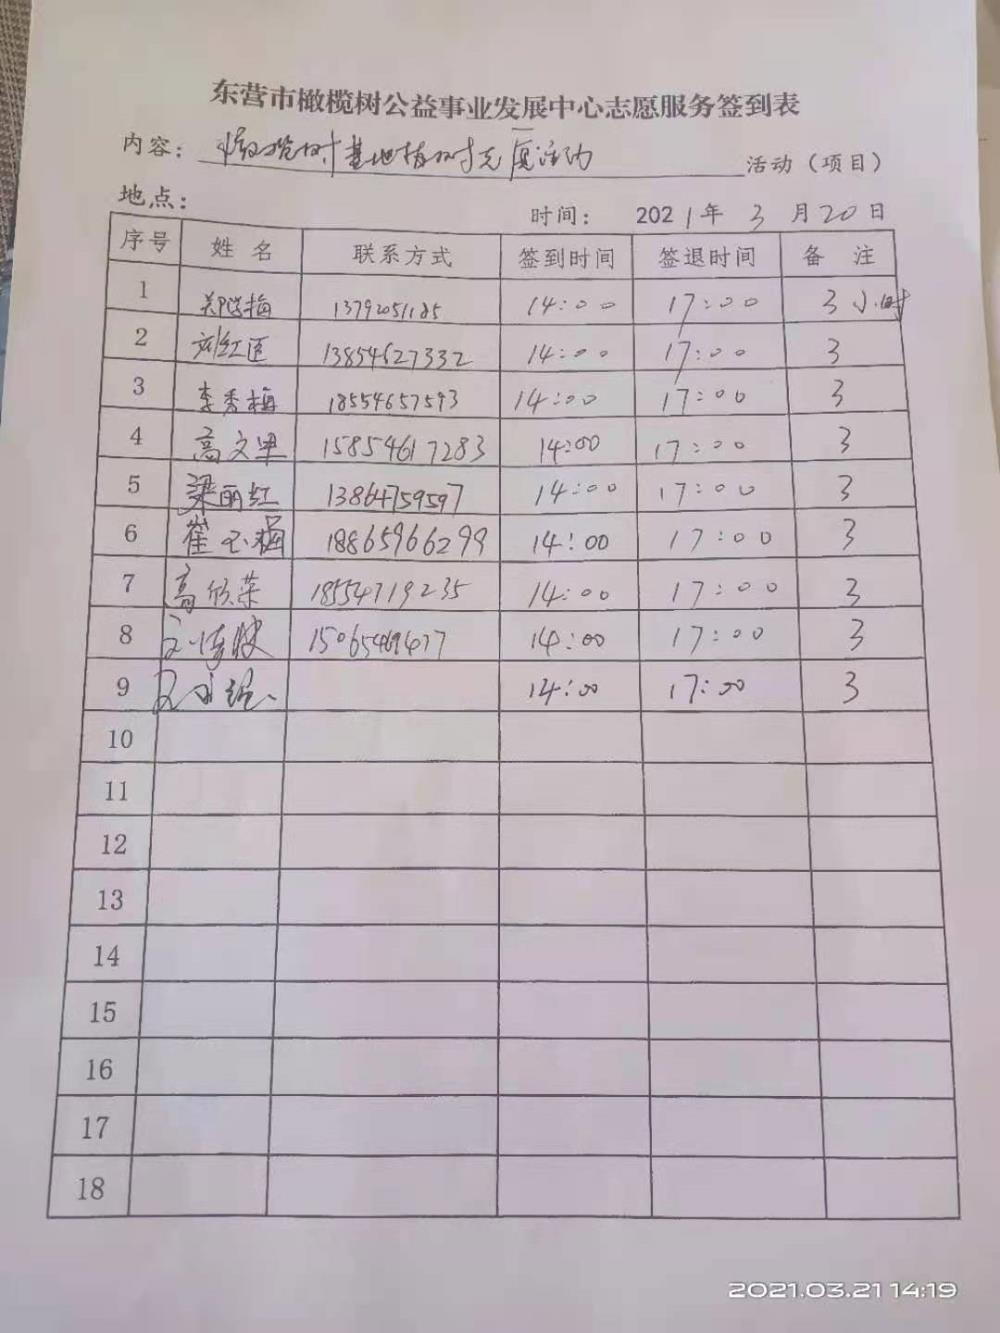 东营市橄榄树公益事业发展中心志愿服务签到表
内容：橄榄树基地植树志愿活动 活动（项目）
地点：
时间： 2021年 3 月 20 日
序号 姓名 联系方式 签到时间 签退时间 备注
1 梅 13792051185 14:00 17:00 3小时
2 刘红 13854627332 14:00 17:00 3
3 李秀梅 18554657593 14:00 17:00 3
4 高文 15854617283 14:00 17:00 3
5 梁丽红 13864759597 14:00 17:00 3
6 崔玉梅 18865966299 14:00 17:00 3
7 高欣荣 18554719235 14:00 17:00 3
8 14:00 17:00 3
9 14:00 17:00 3
10
11
12
13
14
15
16
17
18
2021.03.21 14:19